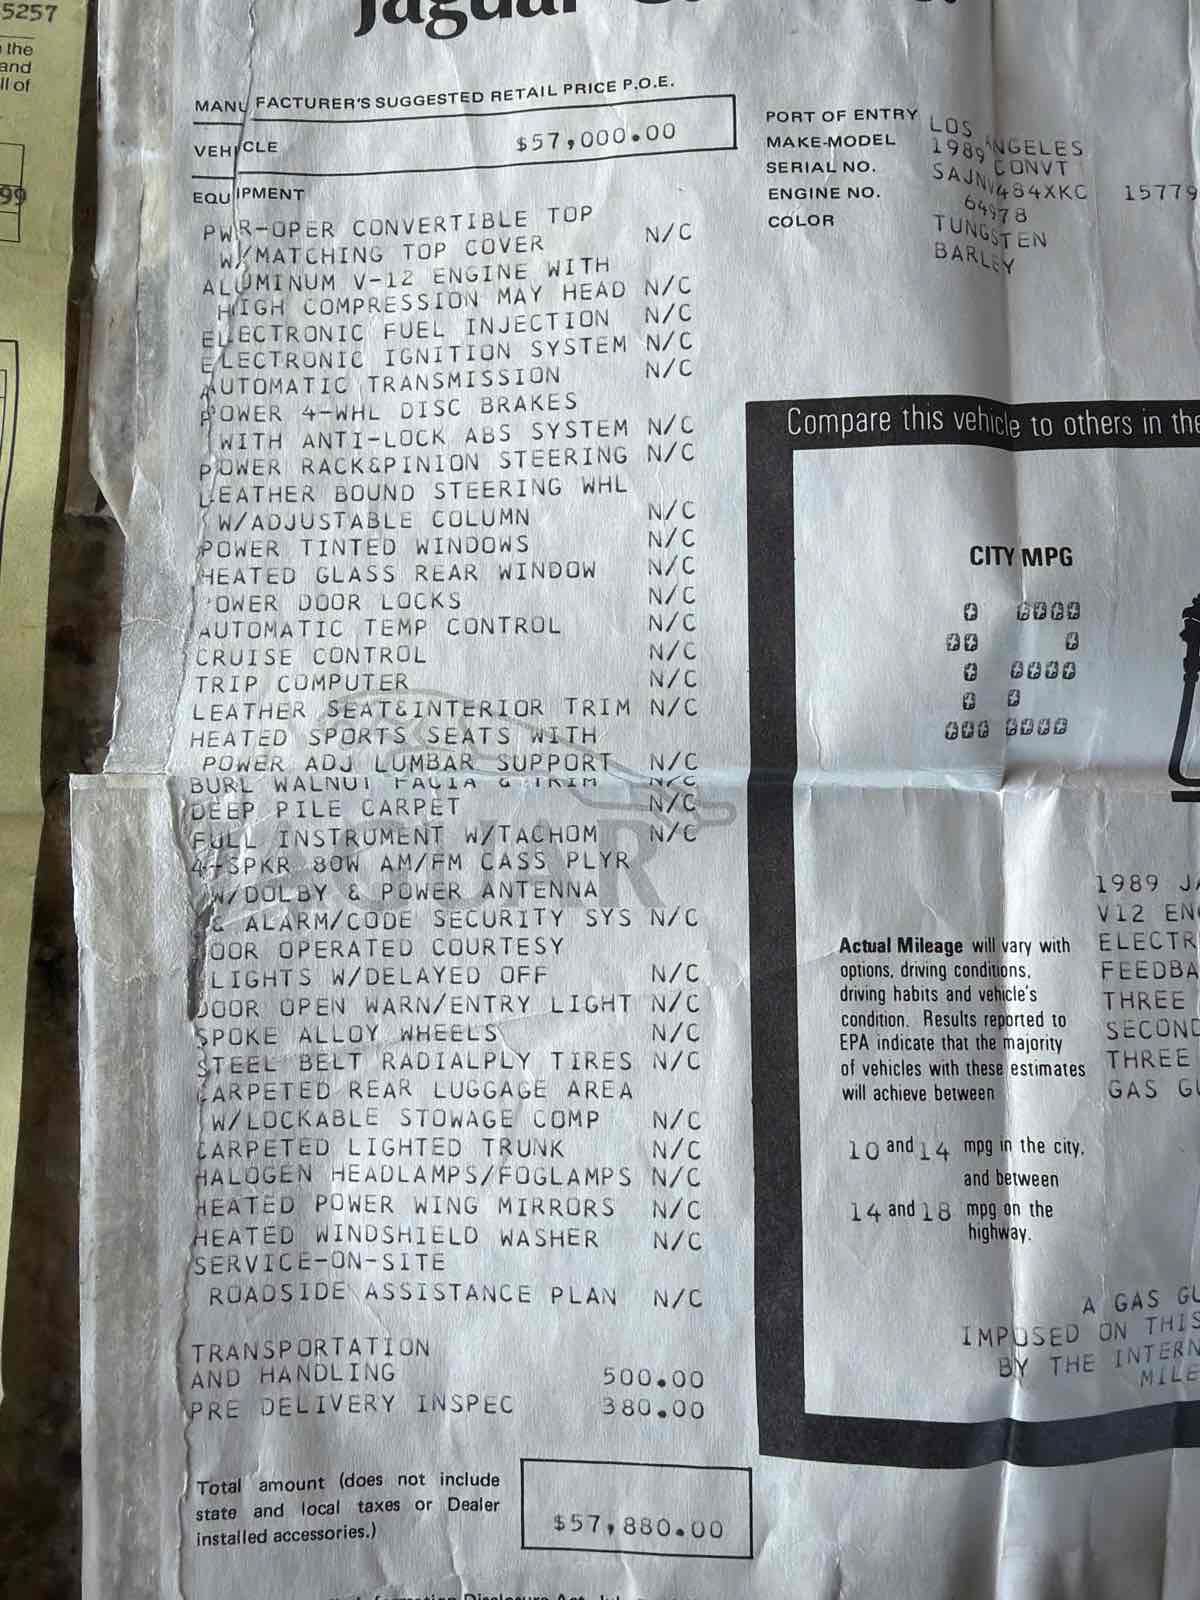 5257
the
and
ll of
99
Jaguar
MANUFACTURER'S SUGGESTED RETAIL PRICE P.O.E.
VEHICLE $57,000.00
EQUIPMENT
PWR-OPER CONVERTIBLE TOP
W/MATCHING TOP COVER N/C
ALUMINUM V-12 ENGINE WITH
HIGH COMPRESSION MAY HEAD N/C
ELECTRONIC FUEL INJECTION N/C
ELECTRONIC IGNITION SYSTEM N/C
AUTOMATIC TRANSMISSION N/C
POWER 4-WHL DISC BRAKES
WITH ANTI-LOCK ABS SYSTEM N/C
POWER RACK&PINION STEERING N/C
LEATHER BOUND STEERING WHL
W/ADJUSTABLE COLUMN N/C
POWER TINTED WINDOWS N/C
HEATED GLASS REAR WINDOW N/C
POWER DOOR LOCKS N/C
AUTOMATIC TEMP CONTROL N/C
CRUISE CONTROL N/C
TRIP COMPUTER N/C
LEATHER SEAT&INTERIOR TRIM N/C
HEATED SPORTS SEATS WITH
POWER ADJ LUMBAR SUPPORT N/C
BURL WALNUT FACIA & TRIM N/C
DEEP PILE CARPET N/C
FULL INSTRUMENT W/TACHOM N/C
4-SPKR 80W AM/FM CASS PLYR
W/DOLBY & POWER ANTENNA
& ALARM/CODE SECURITY SYS N/C
DOOR OPERATED COURTESY
LIGHTS W/DELAYED OFF N/C
DOOR OPEN WARN/ENTRY LIGHT N/C
SPOKE ALLOY WHEELS N/C
STEEL BELT RADIALPLY TIRES N/C
CARPETED REAR LUGGAGE AREA
W/LOCKABLE STOWAGE COMP N/C
CARPETED LIGHTED TRUNK N/C
HALOGEN HEADLAMPS/FOGLAMPS N/C
HEATED POWER WING MIRRORS N/C
HEATED WINDSHIELD WASHER N/C
SERVICE-ON-SITE
ROADSIDE ASSISTANCE PLAN N/C
TRANSPORTATION
AND HANDLING 500.00
PRE DELIVERY INSPEC 380.00
Total amount (does not include
state and local taxes or Dealer
installed accessories.)
$57,880.00
PORT OF ENTRY LOS ANGELES
MAKE-MODEL 1989 CONVT
SERIAL NO. SAJNV484XKC 15779
ENGINE NO. 64978
COLOR TUNGSTEN
BARLEY
Compare this vehicle to others in the
CITY MPG
Actual Mileage will vary with
options, driving conditions,
driving habits and vehicle's
condition. Results reported to
EPA indicate that the majority
of vehicles with these estimates
will achieve between
10 and 14 mpg in the city,
and between
14 and 18 mpg on the
highway.
1989 JA
V12 EN
ELECTR
FEEDBA
THREE
SECOND
THREE
GAS GU
A GAS GU
IMPOSED ON THIS
BY THE INTERN
MILE